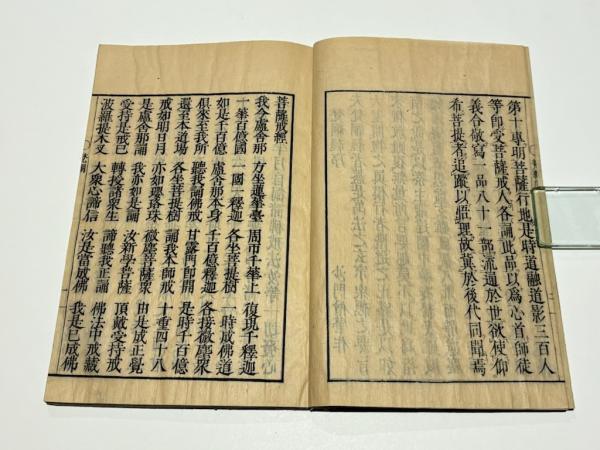 第十專明菩薩行地是時道融道影三百人
等卽受菩薩戒人各誦此品以爲心首師徒
義合敬寫一品八十一部流通於世欲使仰
希菩提者追蹤以悟理故冀於後代同聞焉
菩薩戒經
我今盧舍那 方坐蓮華臺 周帀千華上 復現千釋迦
一華百億國 一國一釋迦 各坐菩提樹 一時成佛道
如是千百億 盧舍那本身 千百億釋迦 各接微塵衆
俱來至我所 聽我誦佛戒 甘露門卽開 是時千百億
還至本道場 各坐菩提樹 誦我本師戒 十重四十八
戒如明日月 亦如瓔珞珠 微塵菩薩衆 由是成正覺
是盧舍那誦 我亦如是誦 汝新學菩薩 頂戴受持戒
受持是戒已 轉授諸衆生 諦聽我正誦 佛法中戒藏
波羅提木叉 大衆心諦信 汝是當成佛 我是已成佛